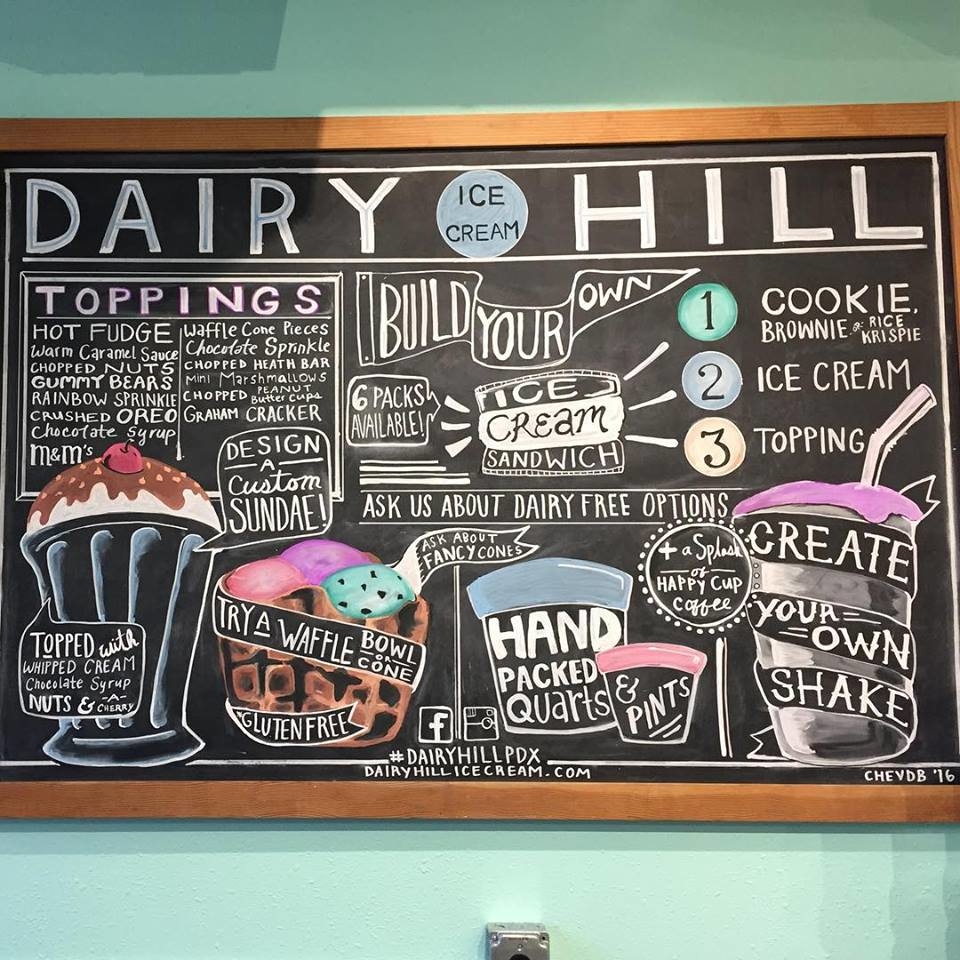 DAIRY ICE CREAM HILL
TOPPINGS
HOT FUDGE
Warm Caramel Sauce
CHOPPED NUTS
GUMMY BEARS
RAINBOW SPRINKLE
CRUSHED OREO
Chocolate Syrup
M&M's
Waffle Cone Pieces
Chocolate Sprinkle
CHOPPED HEATH BAR
Mini Marshmallows
CHOPPED PEANUT Butter Cups
GRAHAM CRACKER
BUILD YOUR OWN
ICE
CREAM
SANDWICH
6 PACKS
AVAILABLE!
1 COOKIE,
BROWNIE or RICE KRISPIE
2 ICE CREAM
3 TOPPING
ASK US ABOUT DAIRY FREE OPTIONS
DESIGN
A
Custom
SUNDAE!
TOPPED with
WHIPPED CREAM
Chocolate Syrup
NUTS & A CHERRY
ASK ABOUT
FANCY CONES
TRY A WAFFLE BOWL or CONE
GLUTEN FREE
HAND
PACKED
Quarts
&
PINTS
+ a Splash
of
HAPPY CUP
Coffee
CREATE
YOUR
OWN
SHAKE
f
#DAIRYHILLPDX
DAIRYHILLICECREAM.COM
CHEVDB '16